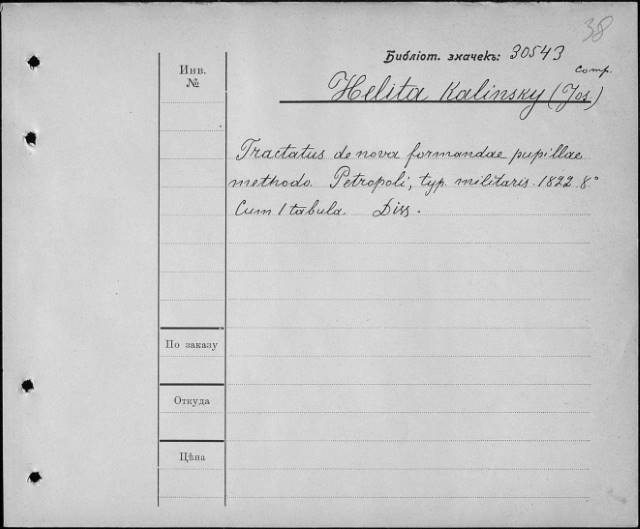 38
Библіот. значекъ: 30543
Comp.
Инв.
№
Helita Kalinsky (Jos.)
Tractatus de nova formandae pupillae
methodo. Petropoli, typ. militaris. 1822. 8°
Cum 1 tabula. Diss.
По заказу
Откуда
Цѣна